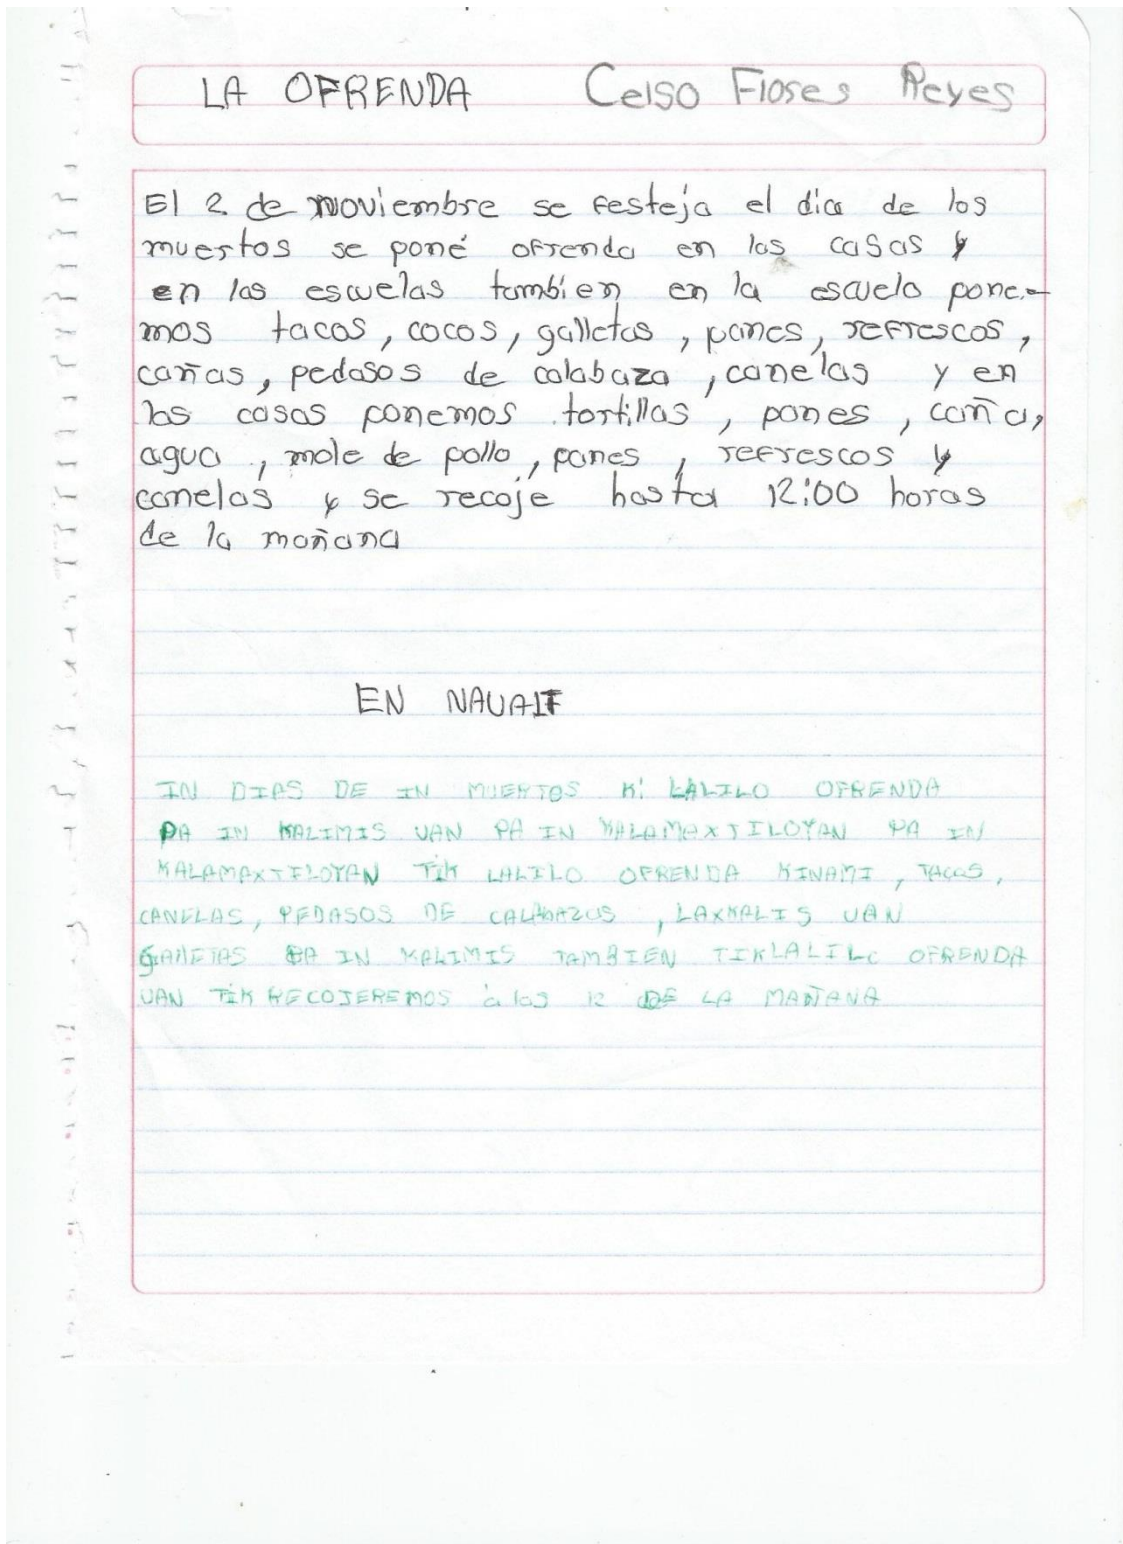 LA OFRENDA Celso Flores Reyes
El 2 de noviembre se festeja el dia de los
muertos se poné ofrenda en las casas y
en las escuelas tambien en la escuela pone-
mos tacos, cocos, galletas, panes, refrescos,
cañas, pedasos de calabaza, canelas y en
las casas ponemos tortillas, panes, caña,
agua, mole de pollo, panes, refrescos y
canelas y se recoje hasta 12:00 horas
de la mañana
EN NAUATF
IN DIAS DE IN MUERTOS KI LALILO OFRENDA
PA IN KALIMIS UAN PA IN KALAMAXTILOYAN PA IN
KALAMAXTILOYAN TIK LALILO OFRENDA KINAMI, TACOS,
CANELAS, PEDASOS DE CALABAZUS, LAXKALIS UAN
GALLETAS PA IN KALIMIS TAMBIEN TIKLALILO OFRENDA
UAN TIK RECOJEREMOS a las 12 DE LA MAÑANA